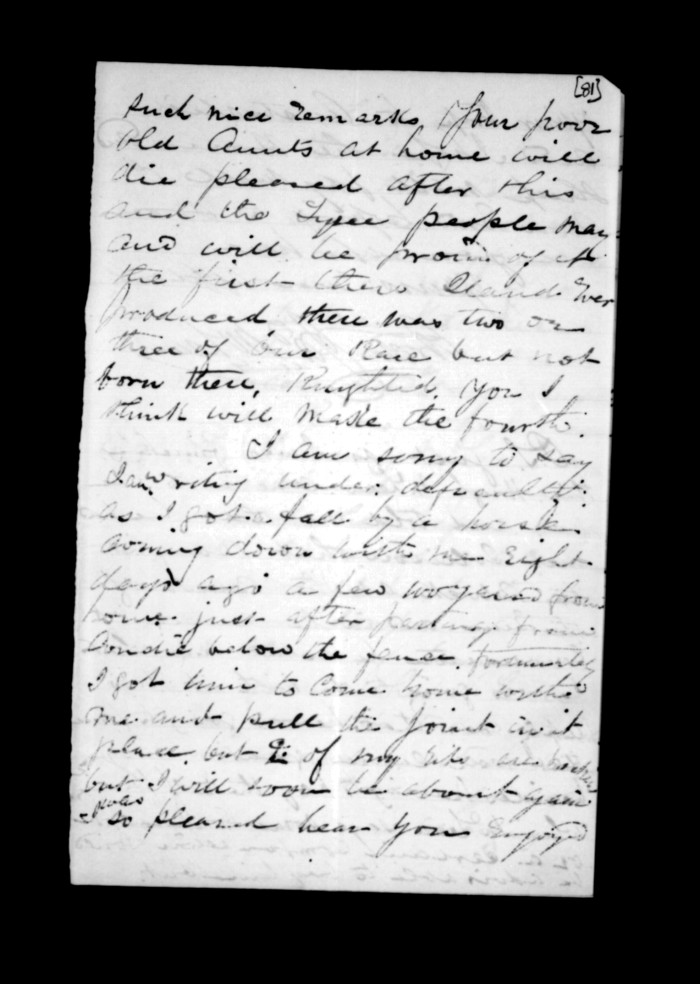 [81]
such nice remarks, your poor
old Aunts at home will
die pleased after this
and the Tyree people may
and will be proud of it
the first there Island ever
produced there was two or
three of our Race but not
born there, Knighted, you I
think will make the fourth.
I am sorry to say
I am writing under
as I got a fall by a horse
coming down with me Eight
days ago a few from
home just after parting from
below the fence, fortunately
I got him to come home with
me and pull the joint in it
place, but 2 of my ribs are
but I will soon be about again
I was so pleased hear you Enjoyed